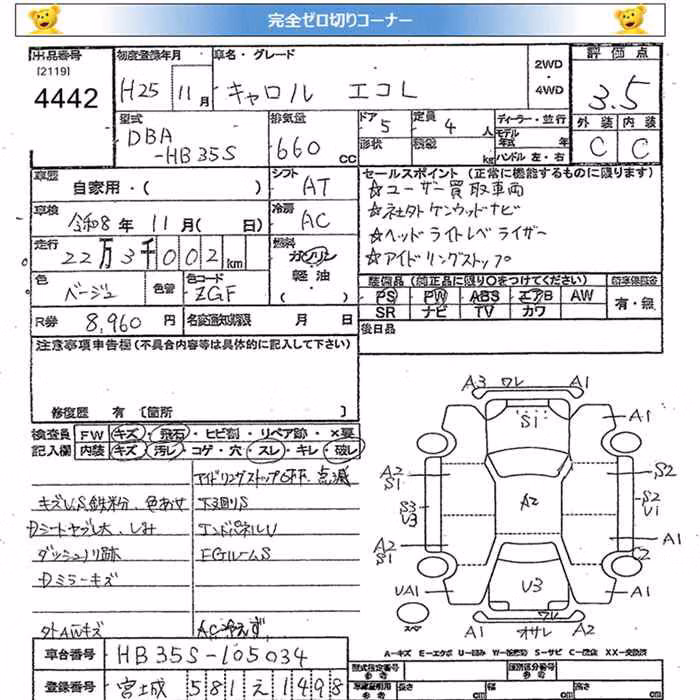 完全ゼロ切りコーナー
出品番号 [2119] 4442
初度登録年月 H25 11月
車名・グレード キャロル エコL
2WD ・ 4WD
評価点 3.5
外装 内装 C C
型式 DBA -HB35S
排気量 660 cc
ドア 5 定員 4 人
形状 積載 kg
ディーラー・並行
モデル年式 年式
ハンドル 左・右
車歴 自家用・( )
シフト AT
車検 令和8年 11月( 日)
冷房 AC
走行 22万3千002km
燃料 ガソリン 軽油 ( )
色 ベージュ 色替
色コード ZGF
R券 8,960 円
名変通知期限 月 日
セールスポイント (正常に機能するものに限ります)
☆ユーザー買取車両
☆社外ケンウッドナビ
☆ヘッドライトレベライザー
☆アイドリングストップ
装備品 (純正品に限り○をつけてください)
PS PW ABS エアB AW
SR ナビ TV カワ
新車保証書 有・無
後日品
注意事項申告欄 (不具合内容等は具体的に記入して下さい)
修復歴 有 [箇所 ]
検査員記入欄
FW キズ・飛石・ヒビ割・リペア跡・×要
内装 キズ・汚レ・コゲ・穴・スレ・キレ・破レ
アイドリングストップOFF 点滅
キズU.S.鉄粉、色あせ 下回りS
Dシートヤブレ大、しみ エンドパネルU
ダッシュノリ跡 EGルームS
Dミラーキズ
外AWキズ AC冷えず
A3 ワレ A1
S1
A1
A2 S1
S2
A2
S3 V3
S2 V1
A2 S1
A1
C2
UA1
V3
A1
スペア
A1 ワレ A2
オサレ
A-キズ E-エクボ U-凹み W-板金跡 S-サビ C-腐食 XX-交換済
車台番号 HB35S-105034
登録番号 宮城 581 え 1498
型式指定番号 参考
類別区分番号 参考
長さ cm 幅 cm 高さ cm